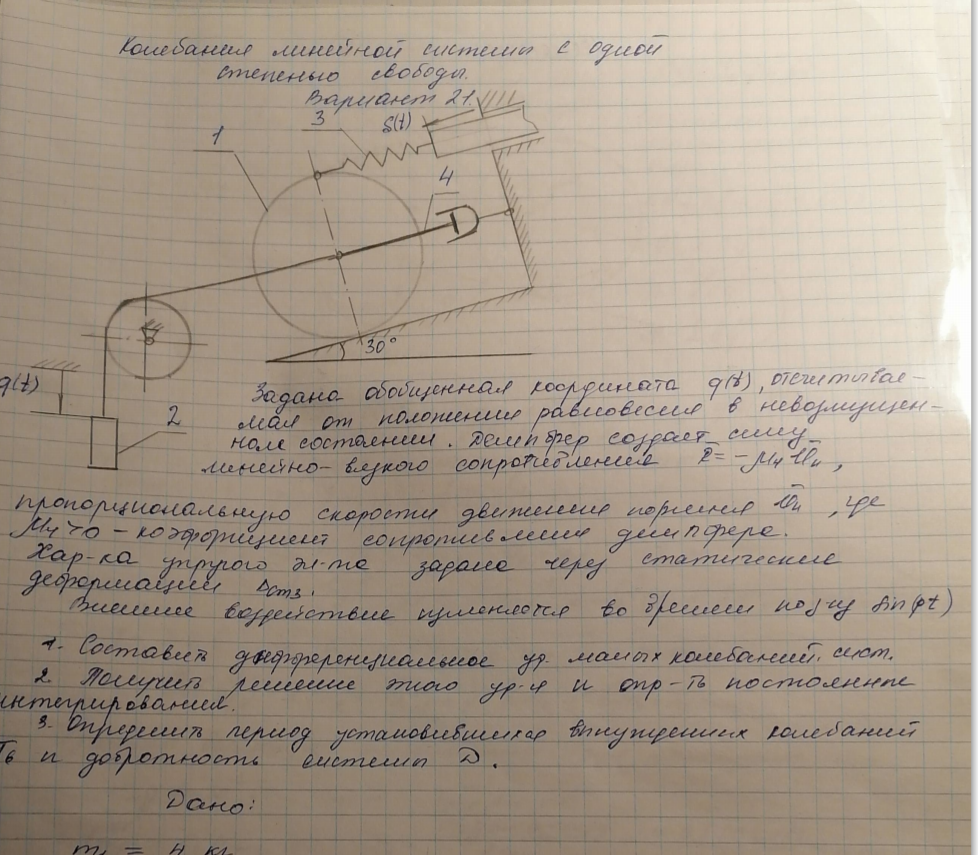 Колебания линейной системы с одной
степенью свободы.
Вариант 21.
3
S(t)
1
4
30°
q(t)
2
Задана обобщенная координата q(t), отсчитывае-
мая от положения равновесия в невозмущен-
ном состоянии. Демпфер создает силу
линейно-вязкого сопротивления R̄ = -μ₄ v̄ₙ,
пропорциональную скорости движения поршня v̄ₙ, где
μ₄>0 - коэффициент сопротивления демпфера.
Хар-ка упругого эл-та задана через статические
деформации Δст₃.
Внешнее воздействие изменяется во времени по з-ну sin(pt)
1. Составить дифференциальное ур. малых колебаний. сист.
2. Получить решение этого ур-я и опр-ть постоянные
интегрирования.
3. Определить период установившихся вынужденных колебаний
Tв и добротность системы D.
Дано:
m₁ = 4 кг